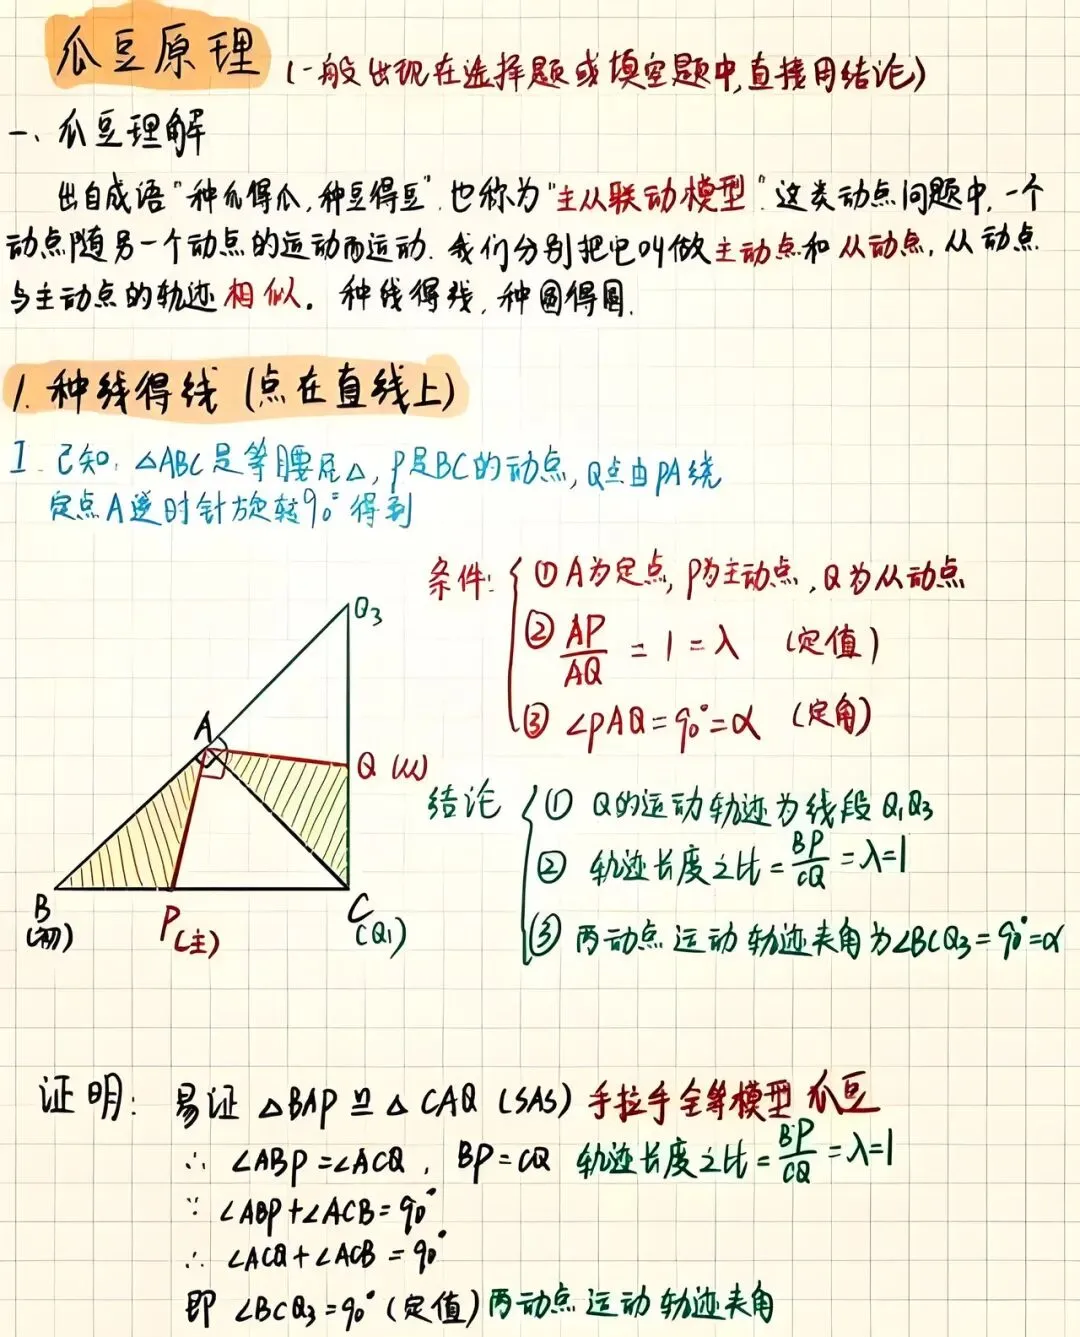 瓜豆原理 (一般出现在选择题或填空题中,直接用结论)
一、瓜豆理解
出自成语"种瓜得瓜,种豆得豆",也称为"主从联动模型".这类动点问题中,一个
动点随另一个动点的运动而运动.我们分别把它叫做主动点和从动点,从动点
与主动点的轨迹相似。种线得线,种圆得圆.
1.种线得线(点在直线上)
I.已知,△ABC是等腰Rt△,P是BC的动点,Q点由PA绕
定点A逆时针旋转90°得到
条件:
①A为定点,P为主动点,Q为从动点
②AP/AQ=1=λ (定值)
③∠PAQ=90°=α (定角)
Q3
A
Q(从)
B
(初)
P(主)
C
(Q1)
结论
①Q的运动轨迹为线段Q1Q3
②轨迹长度之比=BP/CQ=λ=1
③两动点运动轨迹夹角为∠BCQ3=90°=α
证明:易证△BAP≌△CAQ(SAS)手拉手全等模型瓜豆
∴∠ABP=∠ACQ,BP=CQ 轨迹长度之比=BP/CQ=λ=1
∵∠ABP+∠ACB=90°
∴∠ACQ+∠ACB=90°
即∠BCQ3=90°(定值)两动点运动轨迹夹角